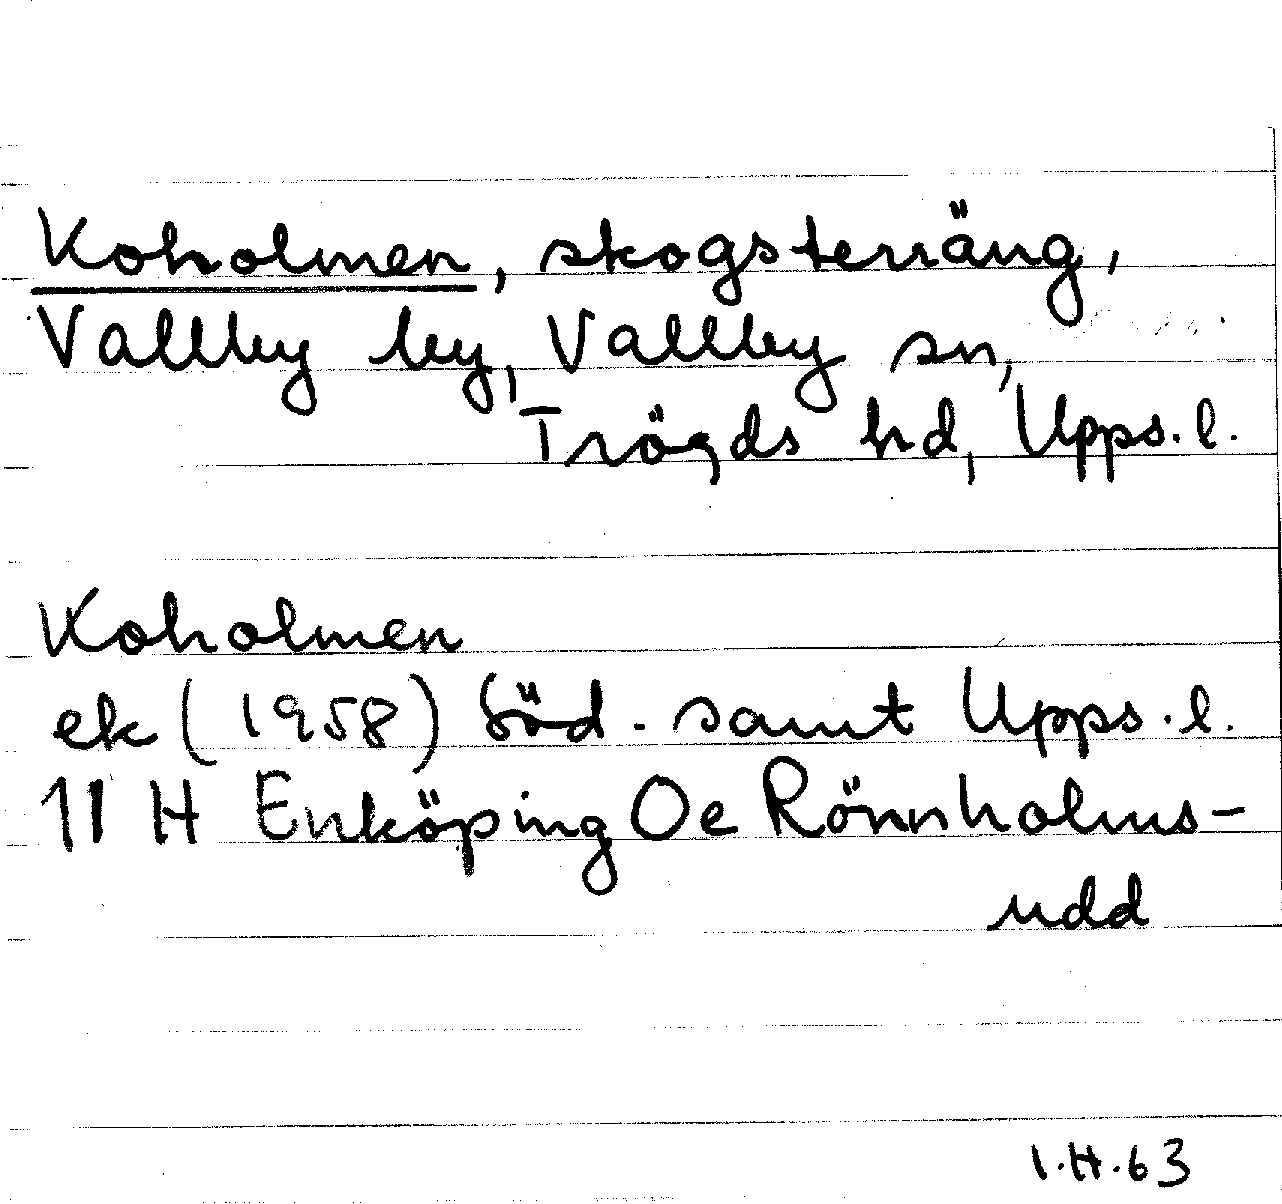 Koholmen, skogsterräng,
Vallby by, Vallby sn,
Trögds hd, Upps. l.
Koholmen
ek (1958) Söd. samt Upps. l.
11 H Enköping Oe Rönnholms-
udd
I.H.63